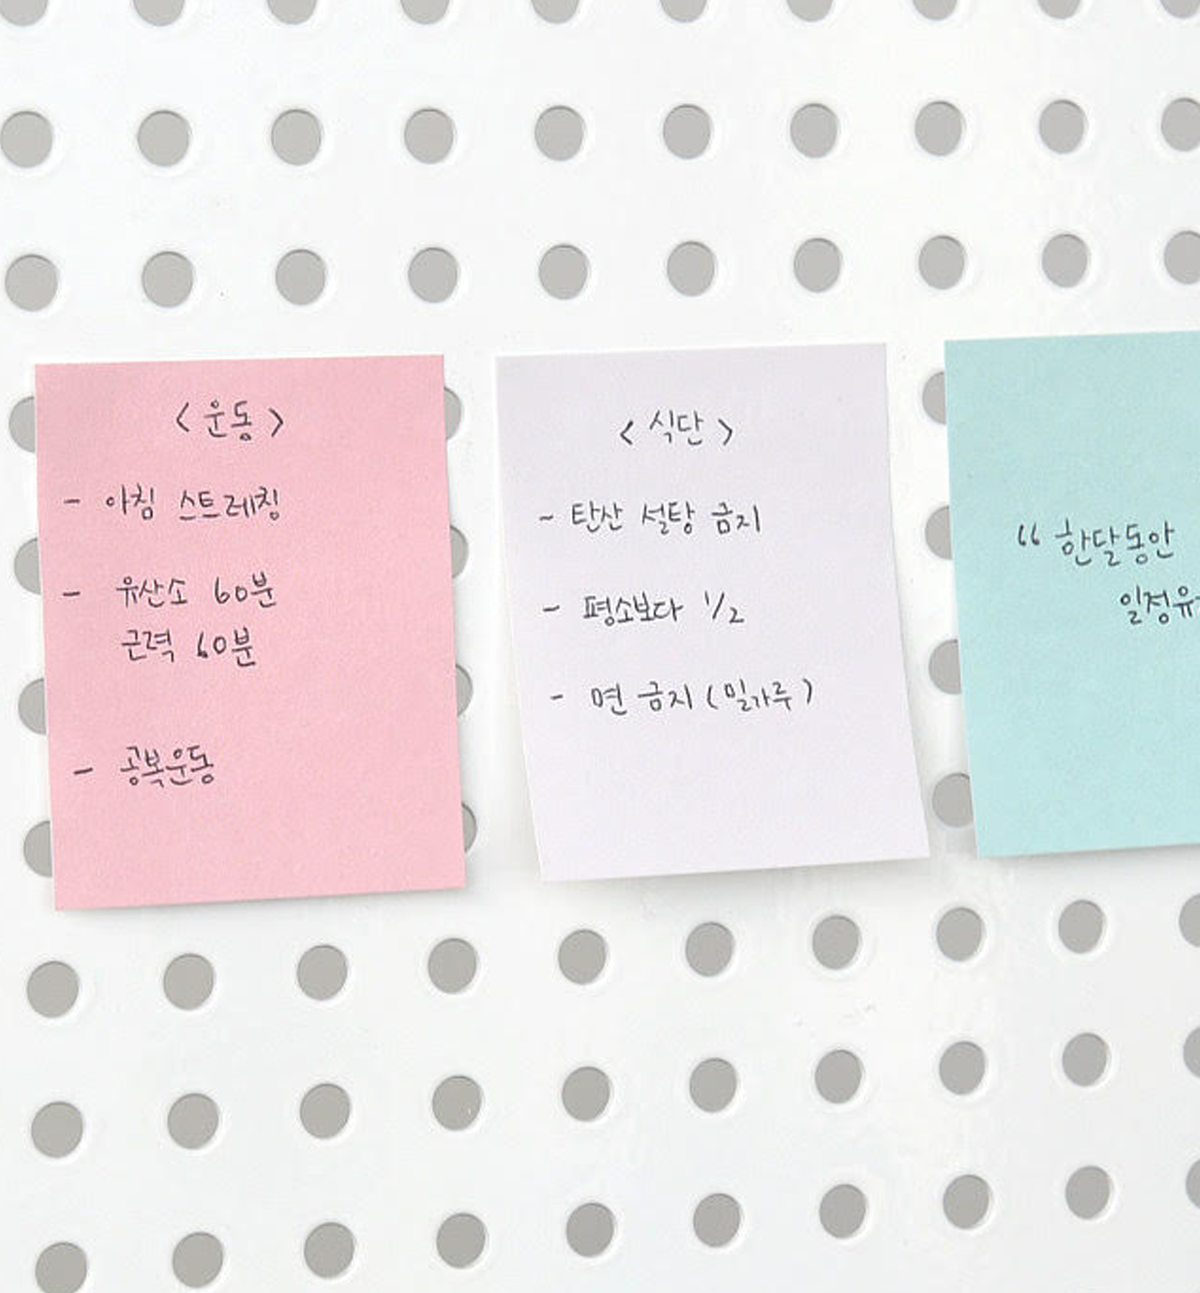 <운동>
- 아침 스트레칭
- 유산소 60분
근력 60분
- 공복운동
<식단>
- 탄산 설탕 금지
- 평소보다 1/2
- 면 금지 (밀가루)
“ 한달동안
일정유